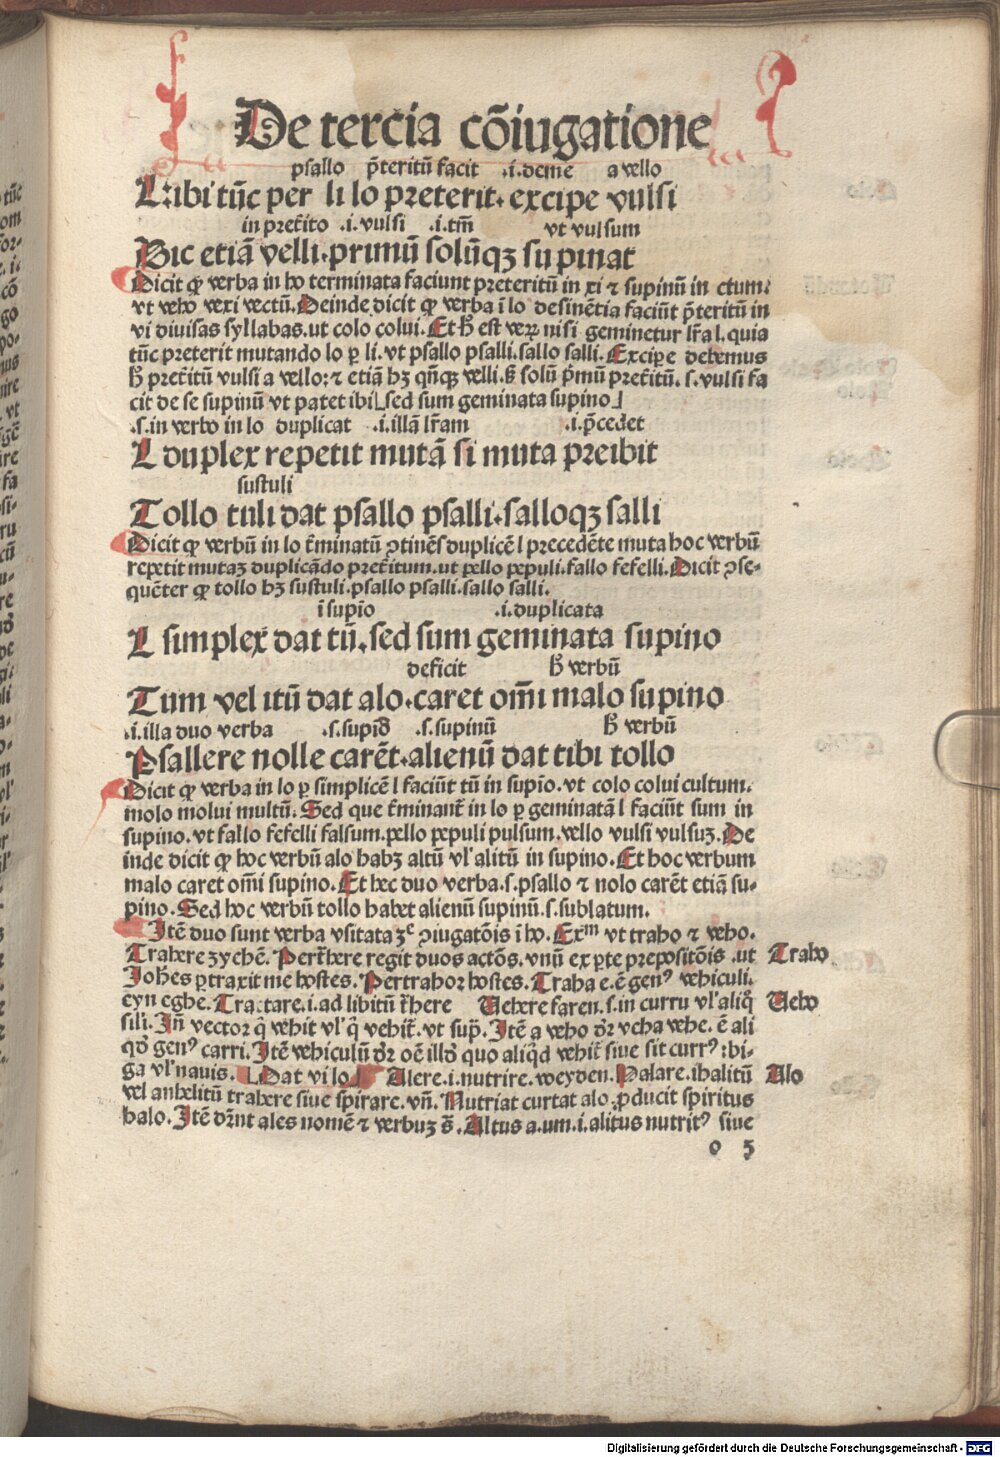 De tercia cõiugatione
psallo p̃teritũ facit .i. deme a vello
L ibi tũc per li lo preterit. excipe vulsi
in pret̃ito .i. vulsi .i. tm̃ vt vulsum
Hic etiã velli. primũ solũqꝫ supinat
Dicit ꝙ verba in ho terminata faciunt preteritũ in xi ⁊ supinũ in ctum.
vt veho vexi vectũ. Deinde dicit ꝙ verba ĩ lo desinẽtia faciũt p̃teritũ in
vi diuisas syllabas. vt colo colui. Et h̃ est veꝝ nisi geminetur lr̃a l. quia
tũc preterit mutando lo ꝑ li. vt psallo psalli. sallo salli. Excipe debemus
h̃ pret̃itũ vulsi a vello: ⁊ etiã hꝫ qñqꝫ velli. sꝫ solũ p̃mũ pret̃itũ. s. vulsi fa
cit de se supinũ vt patet ibi sed sum geminata supino
.s. in verbo in lo duplicat .i. illã lr̃am .i. p̃cedet
L duplex repetit mutã si muta preibit
sustuli
Tollo tuli dat psallo psalli. salloqꝫ salli
Dicit ꝙ verbũ in lo t̃minatũ ꝯtinẽs duplicẽ l precedẽte muta hoc verbũ
repetit mutaꝫ duplicãdo pret̃itum. ut pello pepuli. fallo fefelli. Dicit ꝯse-
quẽter ꝙ tollo hꝫ sustuli. psallo psalli. sallo salli.
ĩ supĩo .i. duplicata
L simplex dat tũ. sed sum geminata supino
deficit h̃ verbũ
Tum vel itũ dat alo. caret om̃i malo supino
.i. illa duo verba .s. supiõ .s. supinũ h̃ verbũ
Psallere nolle carẽt. alienũ dat tibi tollo
Dicit ꝙ verba in lo ꝑ simplicẽ l faciũt tũ in supĩo. vt colo colui cultum.
molo molui multũ. Sed que t̃minant̃ in lo ꝑ geminatã l faciũt sum in
supino. vt fallo fefelli falsum. pello pepuli pulsum. vello vulsi vulsuꝫ. De
inde dicit ꝙ hoc verbũ alo habꝫ altũ vl' alitũ in supino. Et hoc verbum
malo caret om̃i supino. Et hec duo verba. s. psallo ⁊ nolo carẽt etiã su-
pino. Sed hoc verbũ tollo habet alienũ supinũ. s. sublatum.
Itẽ duo sunt verba vsitata ꝫᶜ ꝯiugatõis ĩ ho. Exᵐ vt traho ⁊ veho.
Trahere zyehẽ. Pert̃here regit duos actõs. vnũ ex ꝑte prepositõis .ut Traho
Joh̃es ꝑtraxit me hostes. Pertrahor hostes. Traha e. ẽ genꝰ vehiculi.
eyn eghe. Tractare .i. ad libitũ t̃here Uehere faren. s. in curru vl' aliq̃ Ueho
sili. Iñ vector q̃ vehit vl' q̃ vehit̃. vt sup̃. Itẽ a veho dr̃ veha vehe. ẽ ali
qd̃ genꝰ carri. Itẽ vehiculũ dr̃ oẽ illd̃ quo aliq̃d vehit̃ siue sit currꝰ: bi-
ga vl' nauis. Dat vi lo Alere .i. nutrire. weyden. Palare .i. halitũ Alo
vel anhelitũ trahere siue spirare. vñ. Nutriat curtat alo ꝓducit spiritus
halo. Itẽ dr̃nt ales nomẽ ⁊ verbuꝫ s̃. Altus a. um. i. alitus nutritꝰ siue
o 5
Digitalisierung gefördert durch die Deutsche Forschungsgemeinschaft - DFG